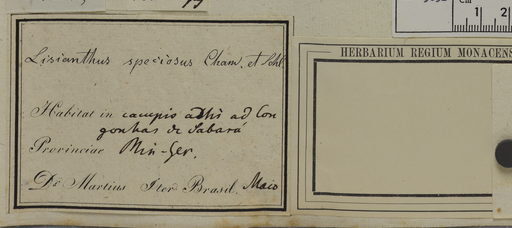 Lisianthus speciosus Cham. et Schl.
Habitat in campis altis ad Con
gonhas de Sabará
Provinciae Min-Ger.
Dr Martius Iter Brasil. Maio
HERBARIUM REGIUM MONACENS
cm 1 2